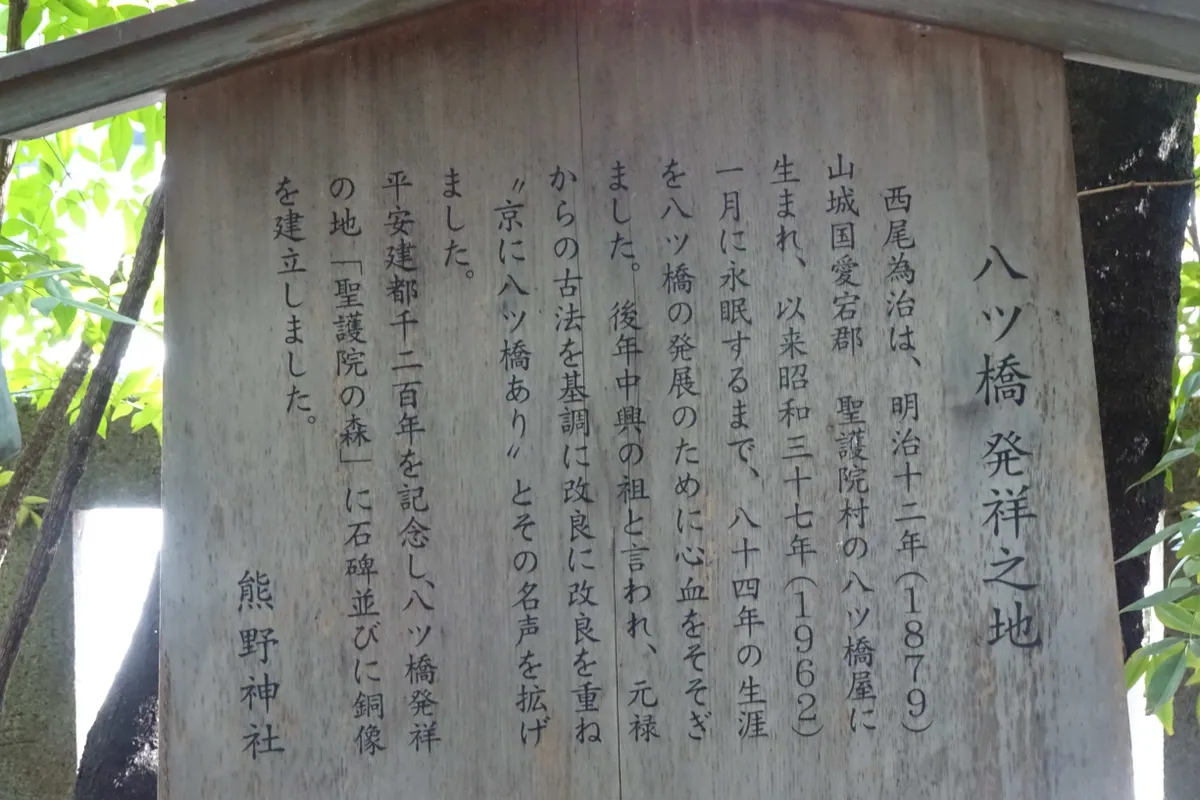 八ツ橋発祥之地
西尾為治は、明治十二年(1879)
山城国愛宕郡 聖護院村の八ツ橋屋に
生まれ、以来昭和三十七年(1962)
一月に永眠するまで、八十四年の生涯
を八ツ橋の発展のために心血をそそぎ
ました。後年中興の祖と言われ、元禄
からの古法を基調に改良に改良を重ね
〝京に八ツ橋あり〟とその名声を拡げ
ました。
平安建都千二百年を記念し、八ツ橋発祥
の地「聖護院の森」に石碑並びに銅像
を建立しました。
熊野神社